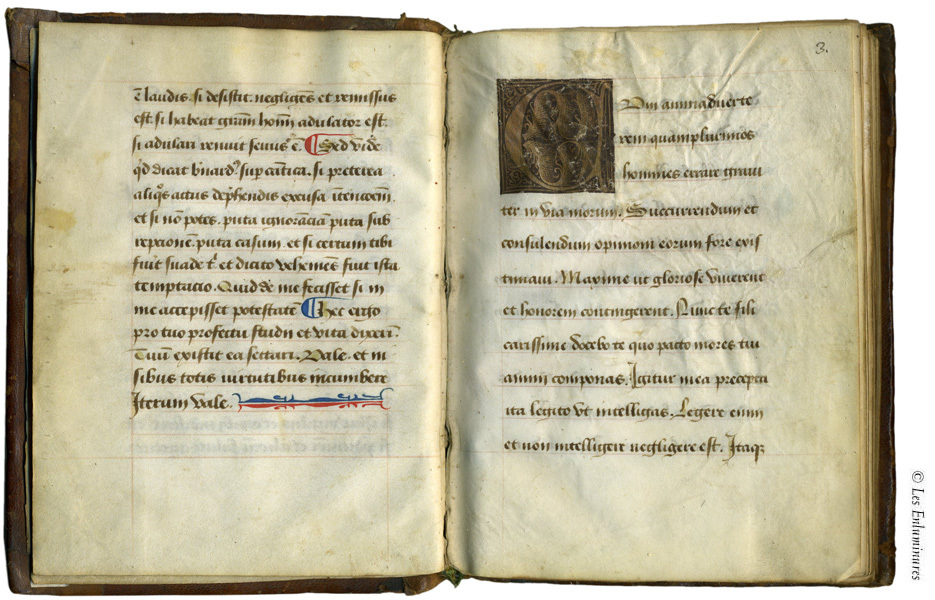 Claudis. si desistit. negligēs et remissus
est. si habeat grām homīn adulator est.
si adulari renuit seruus ē. Sed vide
qd dicat b'nard' sup cantica. si preterea
aliqs actus dep'hendis excusa ītencoēm.
et si nō potes. puta ignorāciā puta sub
repcionē. puta casum. et si certum tibi
fuit suade t' et dicito vehemēs fuit ista
temptacio. Quid de me fecisset si in
me accepisset potestatē Hec ergo
pro tuo profectu studii et vita dixeri.
Tuū existit ea sectari. Vale. et in
sibus totis virtutibus incumbere
Iterum Vale.
3.
Cum animaduerte
rem quamplurimos
homines errare graui
ter in via morum. Succurrendum et
consulendum opinioni eorum fore exis
timaui. Maxime ut gloriose viuerent
et honorem contingerent. Nunc te fili
carissime docebo te quo pacto mores tui
animi componas. Igitur mea precepta
ita legito vt intelligas. Legere enim
et non intelligere negligere est. Itaqz
© Les Enluminures